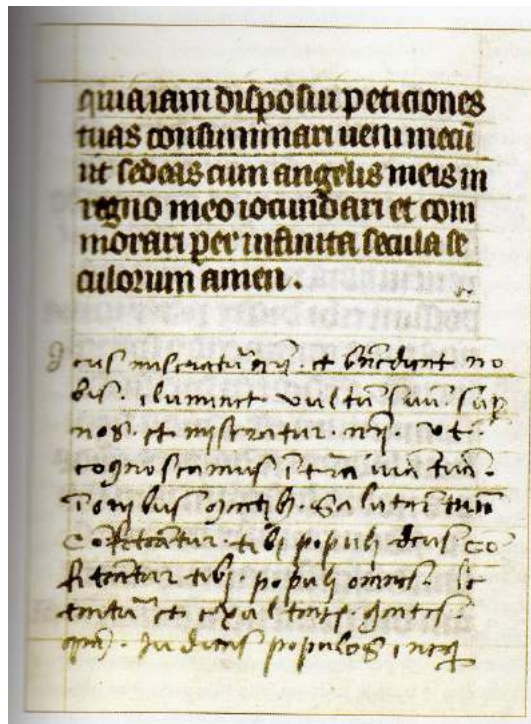 quia iam disposui peticiones
tuas consummari veni mecū
ut sedeas cum angelis meis in
regno meo iocundari et com
morari per infinita secula se
culorum amen.
Deus misereatur nr̄i. et bn̄dicat no
bis. iluminet vultum suū. sup̄
nos. et misereatur. nr̄i. vt.
cognoscamus ī terra viā tuā.
ī omibus gentib. Salutare tuū
Cōfiteātur. tibi populi deus cō
fiteātur tibi. populi omnes. le
tentur et exultent. gentes.
qm̄. Judicas populos ī